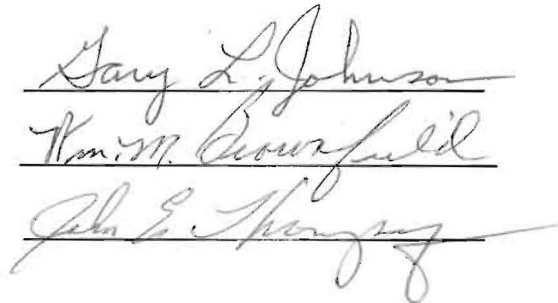 Gary L. Johnson
Wm. M. Brownfield
John E. Thompson